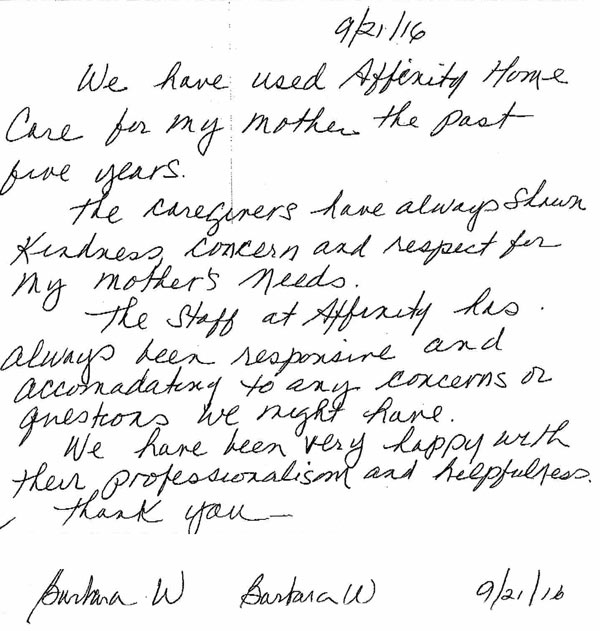 9/21/16
We have used Affinity Home
Care for my mother the past
five years.
The caregivers have always shown
Kindness, concern and respect for
my mother's needs.
The Staff at Affinity has
always been responsive and
accomadating to any concerns or
questions we might have.
We have been very happy with
their professionalism and helpfulness.
Thank you—
Barbara W Barbara W 9/21/16